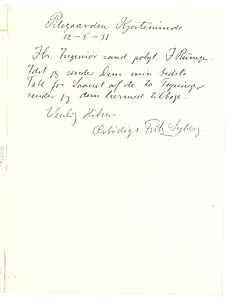 Pilegaarden Kjerteminde
12-5-31
Hr. Ingeniør cand. polyt. J Rump.
Idet jeg sender Dem min bedste
Tak for Laanet af de to Tegninger
sender jeg dem hermed tilbage.
Venlig Hilsen
Ærbødigst Fritz Syberg.